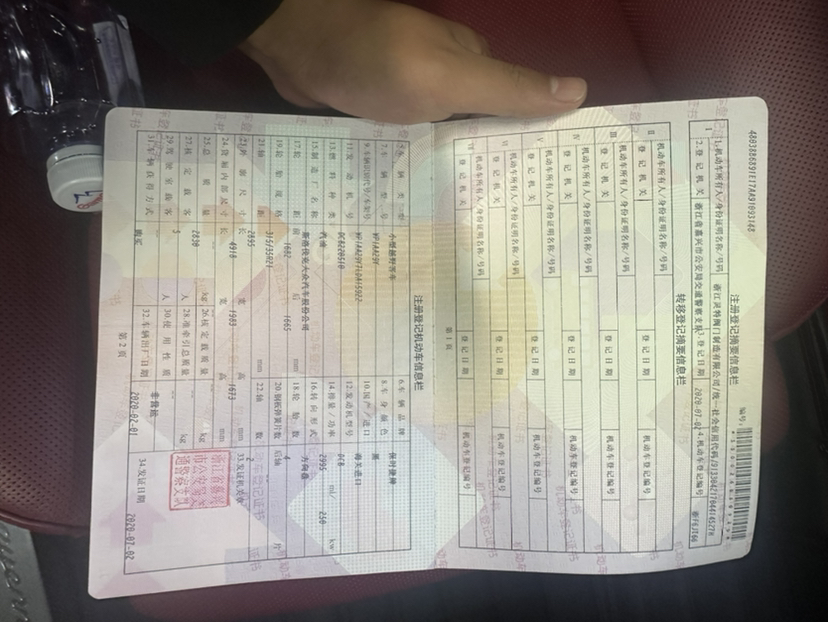 注册登记摘要信息栏
编号:
1.机动车所有人/身份证明名称/号码
浙江灵特阀门制造有限公司/统一社会信用代码/
2.登记机关
浙江省嘉兴市公安局交通警察支队
3.登记日期
2020-07-02
4.机动车登记编号
转移登记摘要信息栏
II
机动车所有人/身份证明名称/号码
登记机关
登记日期
机动车登记编号
III
机动车所有人/身份证明名称/号码
登记机关
登记日期
机动车登记编号
IV
机动车所有人/身份证明名称/号码
登记机关
登记日期
机动车登记编号
V
机动车所有人/身份证明名称/号码
登记机关
登记日期
机动车登记编号
VI
机动车所有人/身份证明名称/号码
登记机关
登记日期
机动车登记编号
VII
机动车所有人/身份证明名称/号码
登记机关
登记日期
机动车登记编号
第1页
注册登记机动车信息栏
5.车辆类型
小型越野客车
6.车辆品牌
保时捷牌
7.车辆型号
WP1AA29Y
8.车身颜色
黑
9.车辆识别代号/车架号
10.国产/进口
海关进口
11.发动机号
12.发动机型号
DCB
13.燃料种类
汽油
14.排量/功率
2995 ml/ 250 kw
15.制造厂名称
斯洛伐克大众汽车股份公司
16.转向形式
方向盘
17.轮距
前 1682 后 1665 mm
18.轮胎数
4
19.轮胎规格
315/35R21
20.钢板弹簧片数
后轴 片
21.轴距
2895 mm
22.轴数
2
23.外廓尺寸
长 4918 宽 1983 高 1673 mm
33.发证机关章
24.货箱内部尺寸
长 宽 高 mm
25.总质量
2890 kg
26.核定载质量
kg
27.核定载客
5 人
28.准牵引总质量
kg
29.驾驶室载客
人
30.使用性质
非营运
31.车辆获得方式
购买
32.车辆出厂日期
2020-02-01
34.发证日期
2020-07-02
第2页